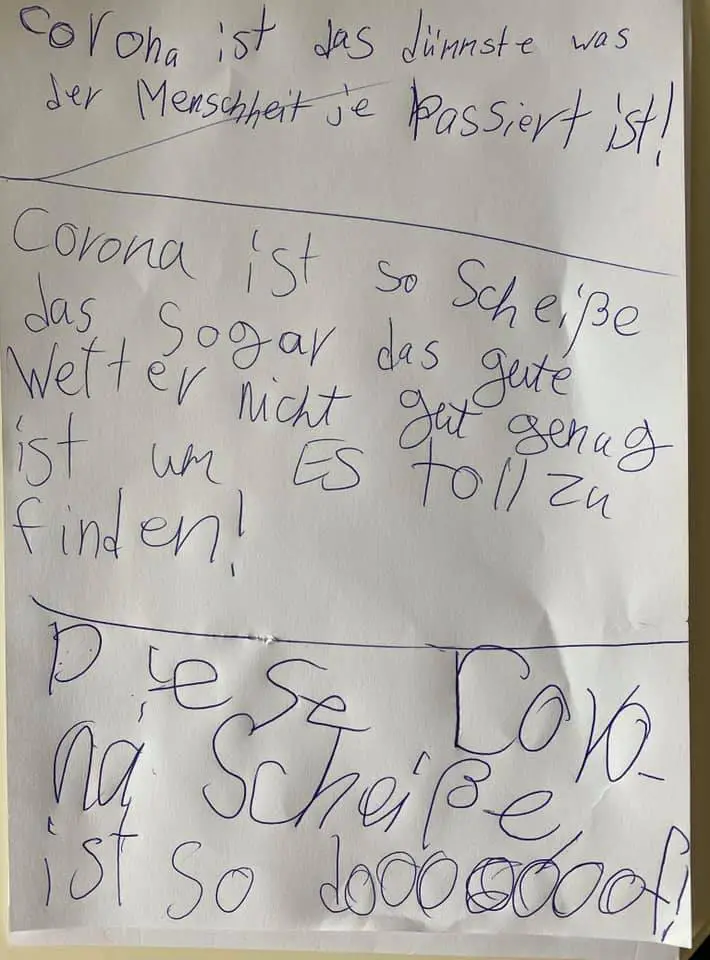 Corona ist das dümnste was
der Menschheit je Passiert ist!
Corona ist so Scheiße
das Sogar das gute
Wetter nicht gut genug
ist um ES toll zu
finden!
Diese Coro-
na Scheiße
ist so doooooooof!